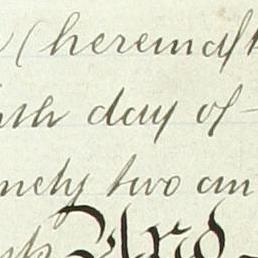 (hereinaft
day of
nety two an
And